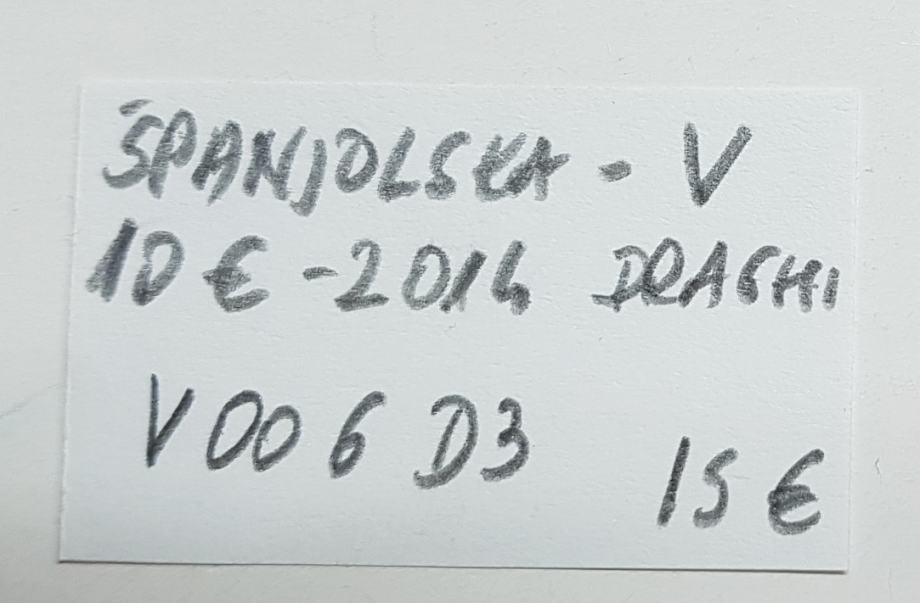 ŠPANJOLSKA - V
10 € - 2014 DRAGHI
V006 D3
15 €